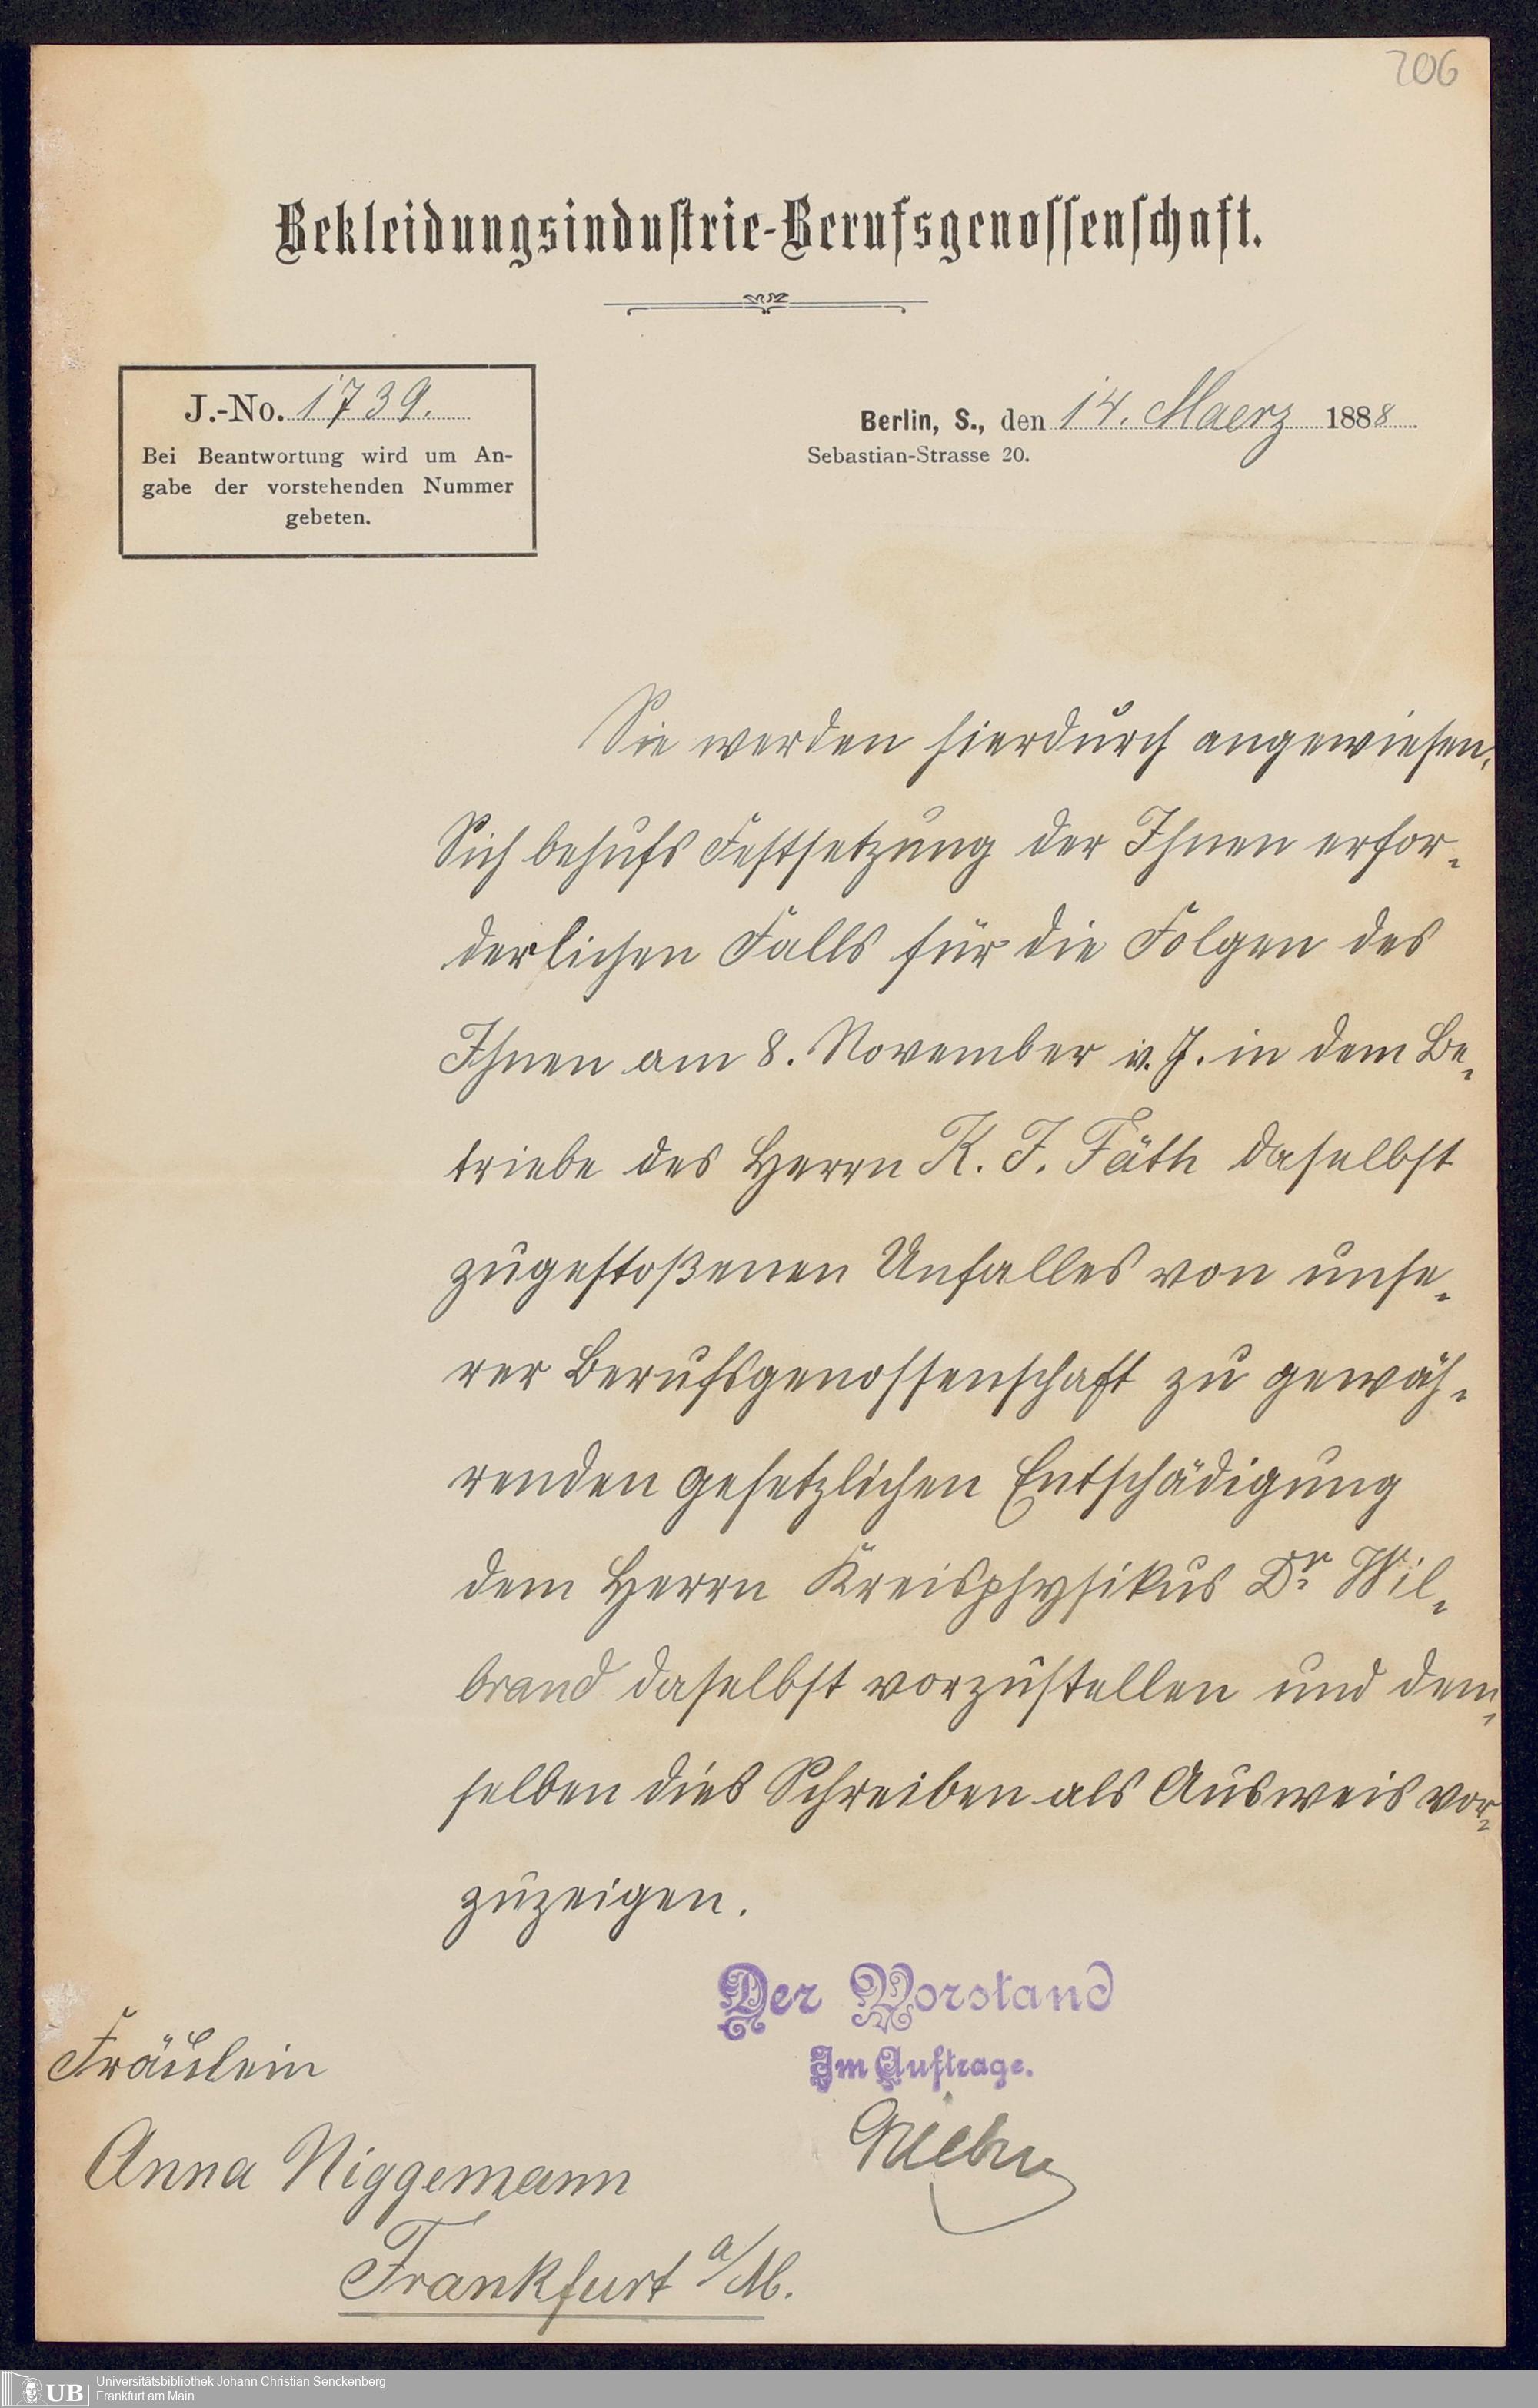 206
Bekleidungsindustrie-Berufsgenossenschaft.
J.-No. 1739.
Bei Beantwortung wird um An-
gabe der vorstehenden Nummer
gebeten.
Berlin, S., den 14. Maerz 1888
Sebastian-Strasse 20.
Sie werden hierdurch angewiesen,
Sich behufs Festsetzung der Ihnen erfor-
derlichen Falls für die Folgen des
Ihnen am 8. November v. J. in dem Be-
triebe des Herrn K. F. Fäth daselbst
zugestoßenen Unfalles von unse-
rer Berufsgenossenschaft zu gewäh-
renden gesetzlichen Entschädigung
dem Herrn Kreisphysikus Dr. Wil-
brand daselbst vorzustellen und dem-
selben dies Schreiben als Ausweis vor-
zuzeigen.
Der Vorstand
Im Auftrage.
Fräulein
Anna Niggemann
Frankfurt a/M.
UB
Universitätsbibliothek Johann Christian Senckenberg
Frankfurt am Main